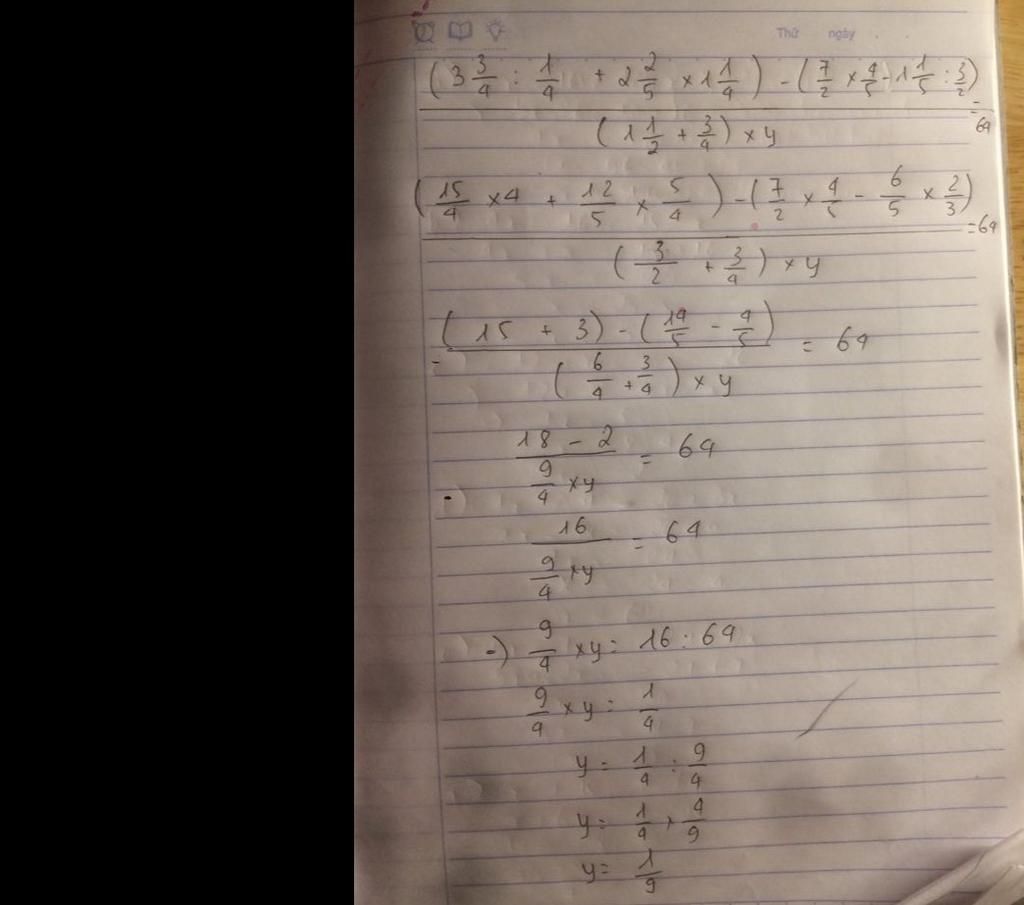 Thứ ngày
(3 3/4 : 1/4 + 2 2/5 × 1 1/4) - (7/2 × 4/5 - 1 1/5 : 3/2)
= 64
(1 1/2 + 3/4) × y
(15/4 × 4 + 12/5 × 5/4) - (7/2 × 4/5 - 6/5 × 2/3)
= 64
(3/2 + 3/4) × y
(15 + 3) - (14/5 - 4/5)
= = 64
(6/4 + 3/4) × y
18 - 2
= 64
9/4 × y
16
= 64
9/4 × y
=) 9/4 × y = 16 : 64
9/4 × y = 1/4
y = 1/4 : 9/4
y = 1/4 × 4/9
y = 1/9